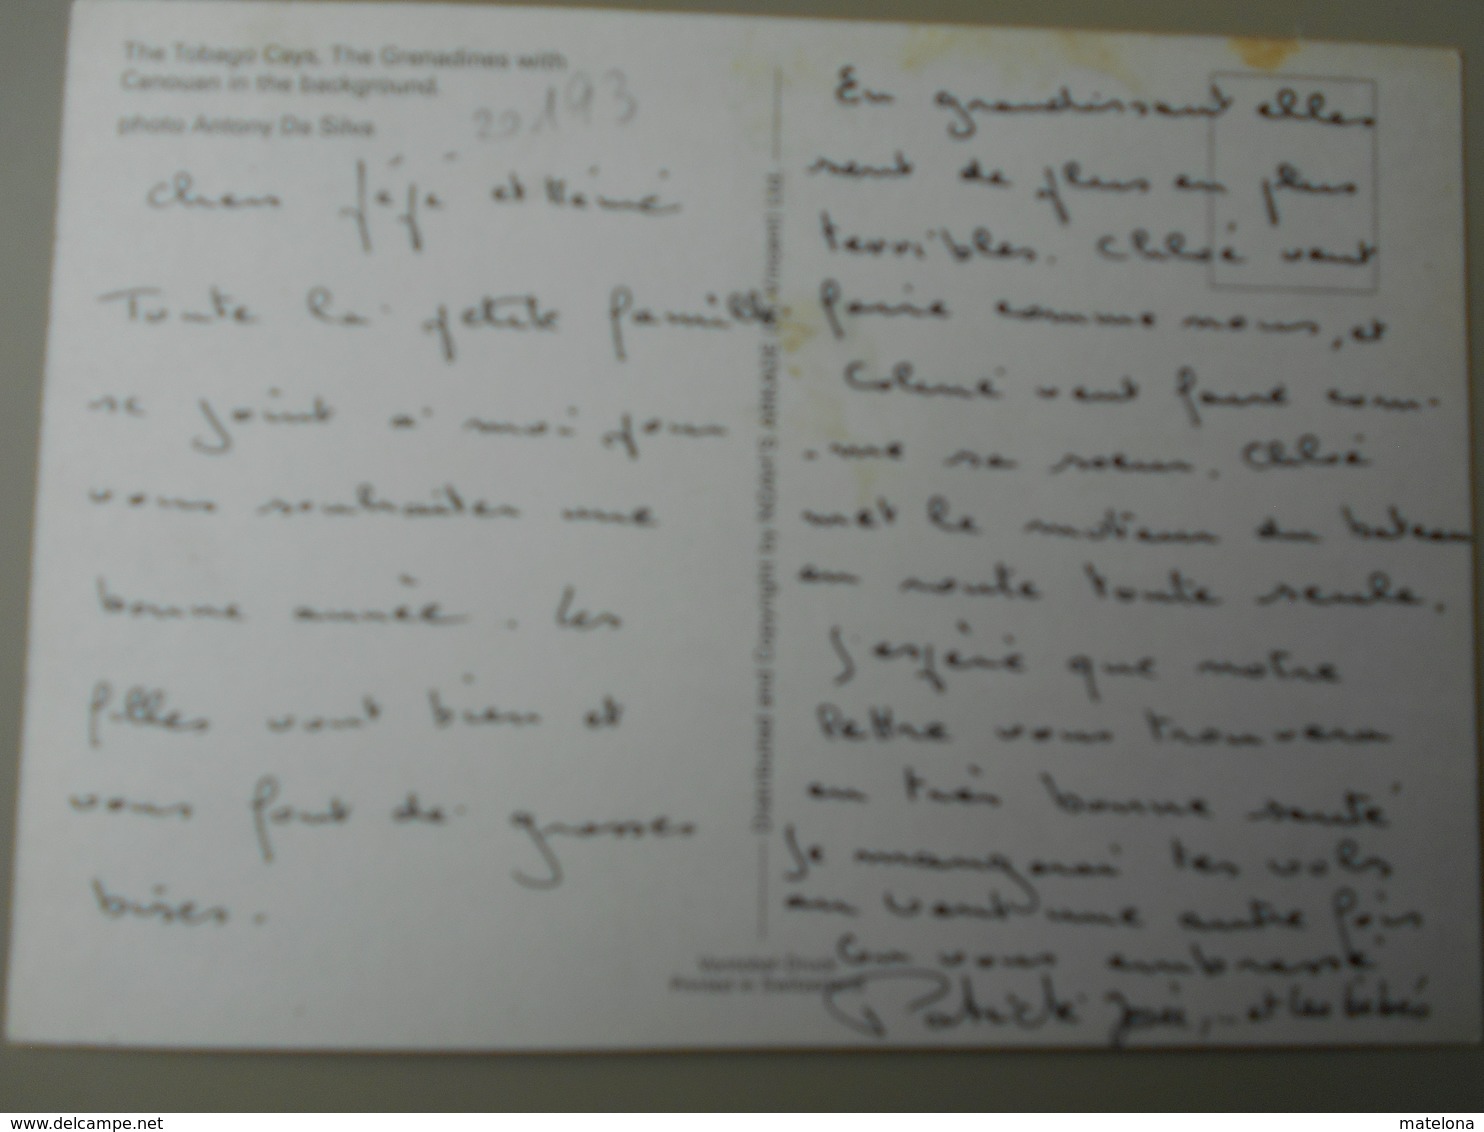 The Tobago Cays. The Grenadines with
Canouan in the background.
photo Antony Da Silva
193
Chers pépé et Mémé
Toute la petite famille
se joint a moi pour
vous souhaiter une
bonne année. Les
filles vont bien et
vous font de grosses
bises.
Distributed and Copyright by
Printed in Switzerland
En grandissant elles
sont de plus en plus
terribles. Chloé veut
faire comme nous, et
veut faire com-
-me sa soeur. Chloé
met le moteur du bateau
en route toute seule.
J'espère que notre
lettre vous trouvera
en très bonne santé
Je mangerai les vols
au vent une autre fois
On vous embrasse
Patrick José, et les bébés
matelona